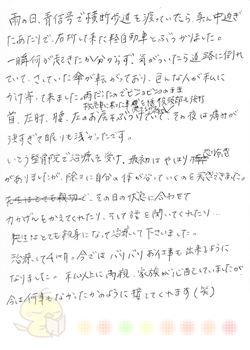 雨の日、青信号で横断歩道を渡っていたら、真ん中過ぎ
たあたりで、右折して来た軽自動車とぶつかりました。
一瞬何が起きたか分からず、気がついたら道路に倒れ
ていて、さしていた傘が転がっており、色んな人が私に
かけ寄って来ました。雨だったのでビショビショのまま
首、左肘、腰、左のお尻をぶつけていて、その夜は痛みが
強すぎて眠りも浅かったです。
いとう整骨院で治療を受け、最初はやはり
がありましたが、除々に自分の体が合っていくのを実感できました。
その日の状態に合わせて
力かげんをかえてくれたり、そして話を聞いてくれたり…
先生はとても親身になって治療して下さいました。
治療して4ヶ月。今ではバリバリお仕事も出来るように
なりました。私以上に両親、家族が心配していましたが
今は何事もなかったかのように接してくれます(笑)